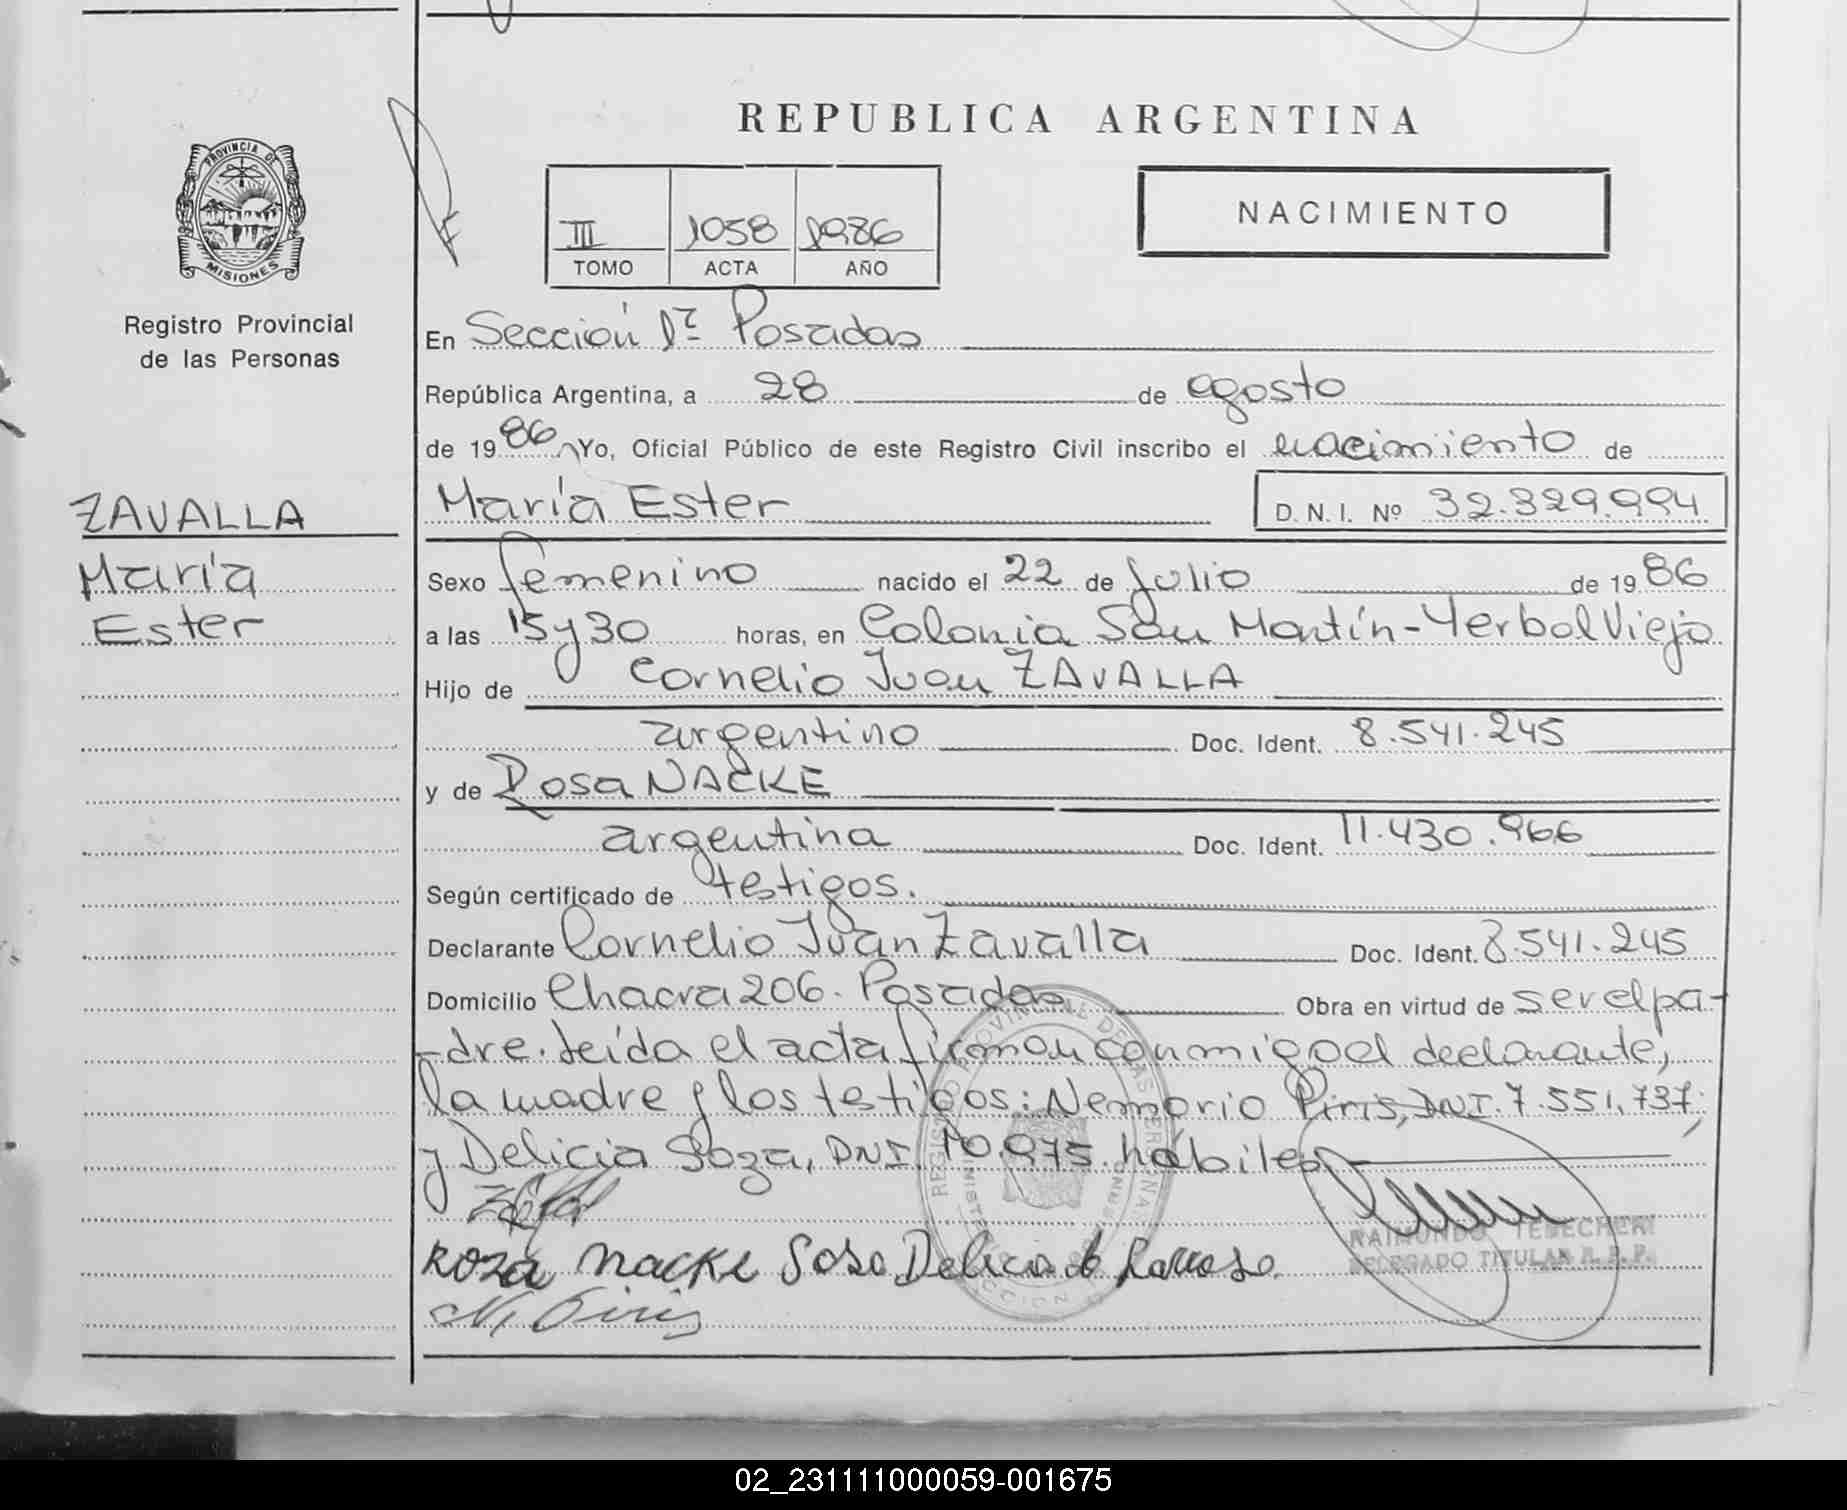 REPUBLICA ARGENTINA
PROVINCIA DE
MISIONES
Registro Provincial
de las Personas
III 1058 1986
TOMO ACTA AÑO
NACIMIENTO
En Sección 1ª Posadas
República Argentina, a 28 de agosto
de 1986 Yo, Oficial Público de este Registro Civil inscribo el nacimiento de
María Ester D.N.I. Nº 32.329.994
ZAVALLA
María
Ester
Sexo femenino nacido el 22 de Julio de 1986
a las 15 y 30 horas, en Colonia San Martín - Yerbal Viejo
Hijo de Cornelio Juan ZAVALLA
argentino Doc. Ident. 8.541.245
y de Rosa NACKE
argentina Doc. Ident. 11.430.966
Según certificado de testigos.
Declarante Cornelio Juan Zavalla Doc. Ident. 8.541.245
Domicilio Chacra 206. Posadas Obra en virtud de ser el pa-
-dre. Leída el acta firman conmigo el declarante,
la madre y los testigos: Nemorio Piris, DNI. 7.551.737,
y Delicia Soza, DNI. 10.975. hábiles
Roza Nacke Soso Delicia de
N. Piris
RAIMUNDO TEBECHERI
DELEGADO TITULAR R. P. P.
REGISTRO PROVINCIAL DE LAS PERSONAS
02_231111000059-001675